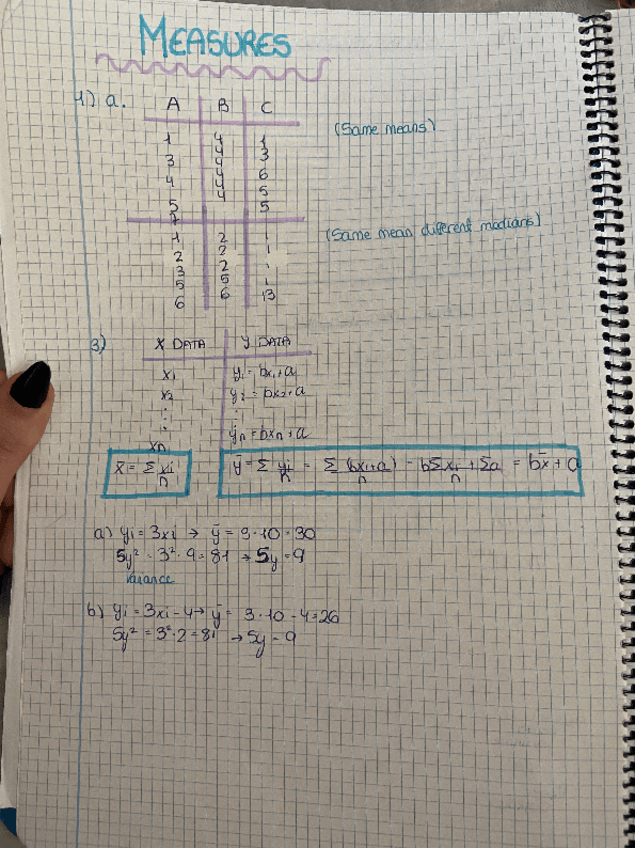 MEASURES
4) a.
A B C
1 4 1
3 4 3
4 4 6
5 4 5
7 4 5
(Same means)
1 2 1
2 2 1
3 2
5 5 1
6 6 13
(Same mean different medians)
3)
X DATA Y DATA
x1 y1 = bx1+a
x2 y2 = bx2+a
: :
xn yn = bxn+a
x̄ = Σ xi/n
ȳ = Σ yi/n = Σ (bxi+a)/n = bΣxi+Σa/n = bx̄ + a
a) yi = 3xi → ȳ = 3·10 = 30
Sy² = 3²·9 = 81 → Sy = 9
Variance
b) yi = 3xi-4 → ȳ = 3·10-4=26
Sy² = 3²·2 = 81 → Sy = 9